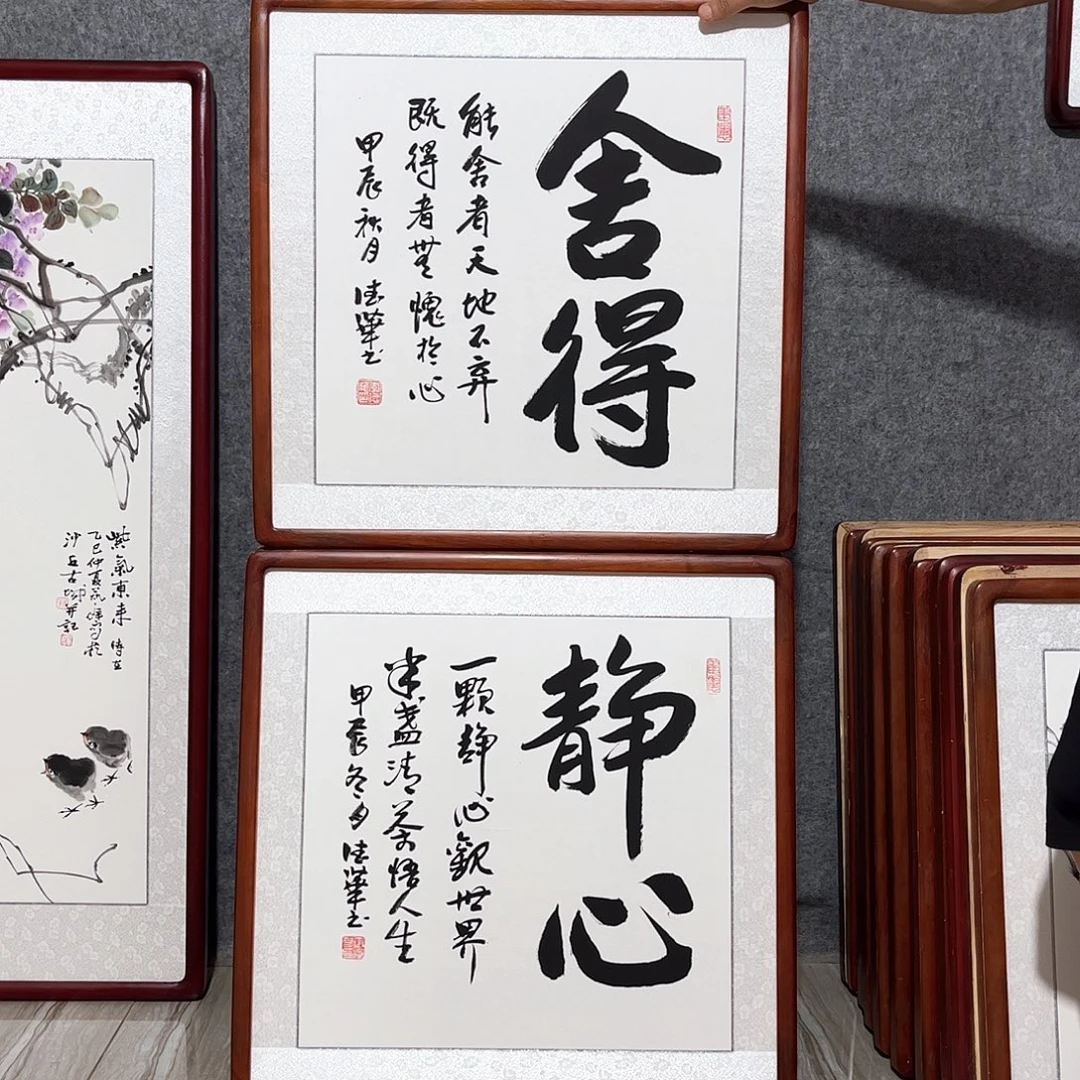 舍得
能舍者天地不弃
既得者無愧於心
甲辰秋月 德華书
静心
一颗静心觀世界
半盏清茶悟人生
甲辰冬月 德華书
紫氣東来 時在
乙巳仲夏
沙丘古